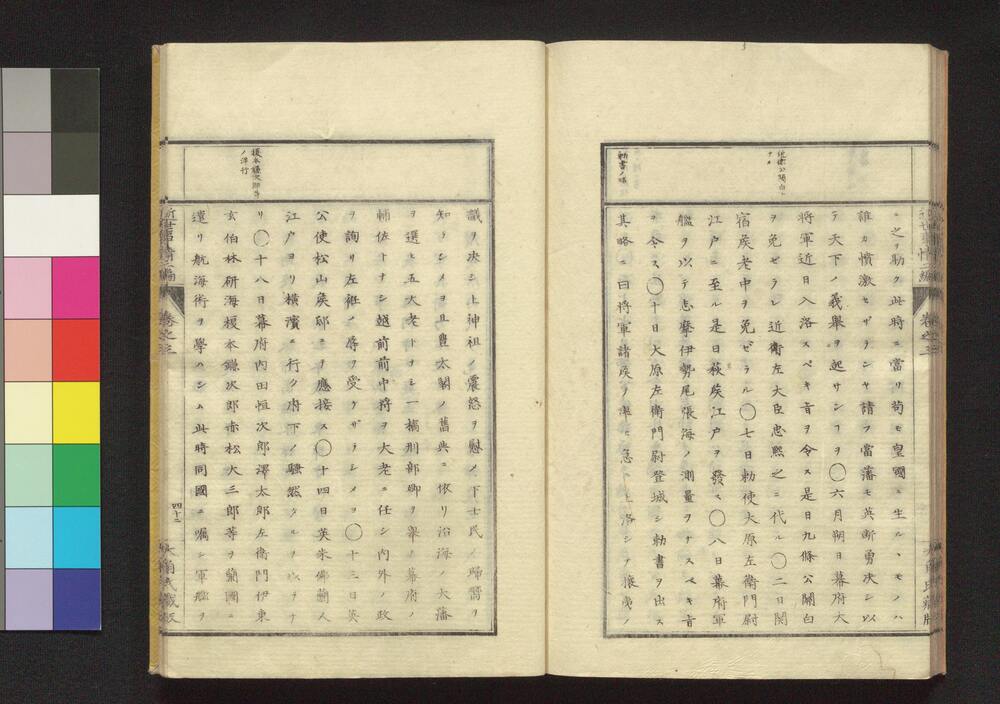 近衛公關白ト
ナル
勅書ノ略
ニ之ヲ勤ク此時ニ當リ苟モ皇國ニ生ルヽモノハ
誰カ憤激セザランヤ請フ當藩モ英斷勇決シ以
テ天下ノ義舉ヲ起サンヿヲ◯六月朔日幕府大
將軍近日入洛スベキ旨ヲ令ス是日九條公關白
ヲ免ゼラレ近衛左大臣忠熙之ニ代ル◯二日閣
宿矦老中ヲ免ゼラル◯七日勅使大原左衛門尉
江戸ニ至ル是日萩矦江戸ヲ發ス◯八日幕府軍
艦ヲ以テ志摩伊勢尾張海ノ測量ヲナスベキ旨
ヲ令ス◯十日大原左衛門尉登城シ勅書ヲ出ス
其略ニ曰將軍諸矦ヲ率ヒ急ニ上洛シテ攘夷ノ
近世事情二編
卷之三
榎本鎌次郎等
ノ洋行
議ヲ決シ上神祖ノ震怒ヲ慰メ下士民ノ歸嚮ヲ
知ラシメヨ且豊太閤ノ舊典ニ依リ沿海ノ大藩
ヲ選ヒ五大老トナシ一橋刑部卿ヲ舉ケ幕府ノ
輔佐トナシ越前前中將ヲ大老ニ任シ内外ノ政
ヲ詢リ左衽ノ辱ヲ受ケザラシメヨ◯十三日英
公使松山矦邸ニテ應接ス◯十四日英米佛蘭人
江戸ヨリ横濱ニ行ク府下ノ騷然タルヲ以テナ
リ◯十八日幕府内田恒次郎澤太郎左衛門伊東
玄伯林研海榎本鎌次郎赤松大三郎等ヲ蘭國ニ
遣リ航海術ヲ學ハシム此時同國ニ囑シ軍艦ヲ
近世事情二編
卷之三
四十二